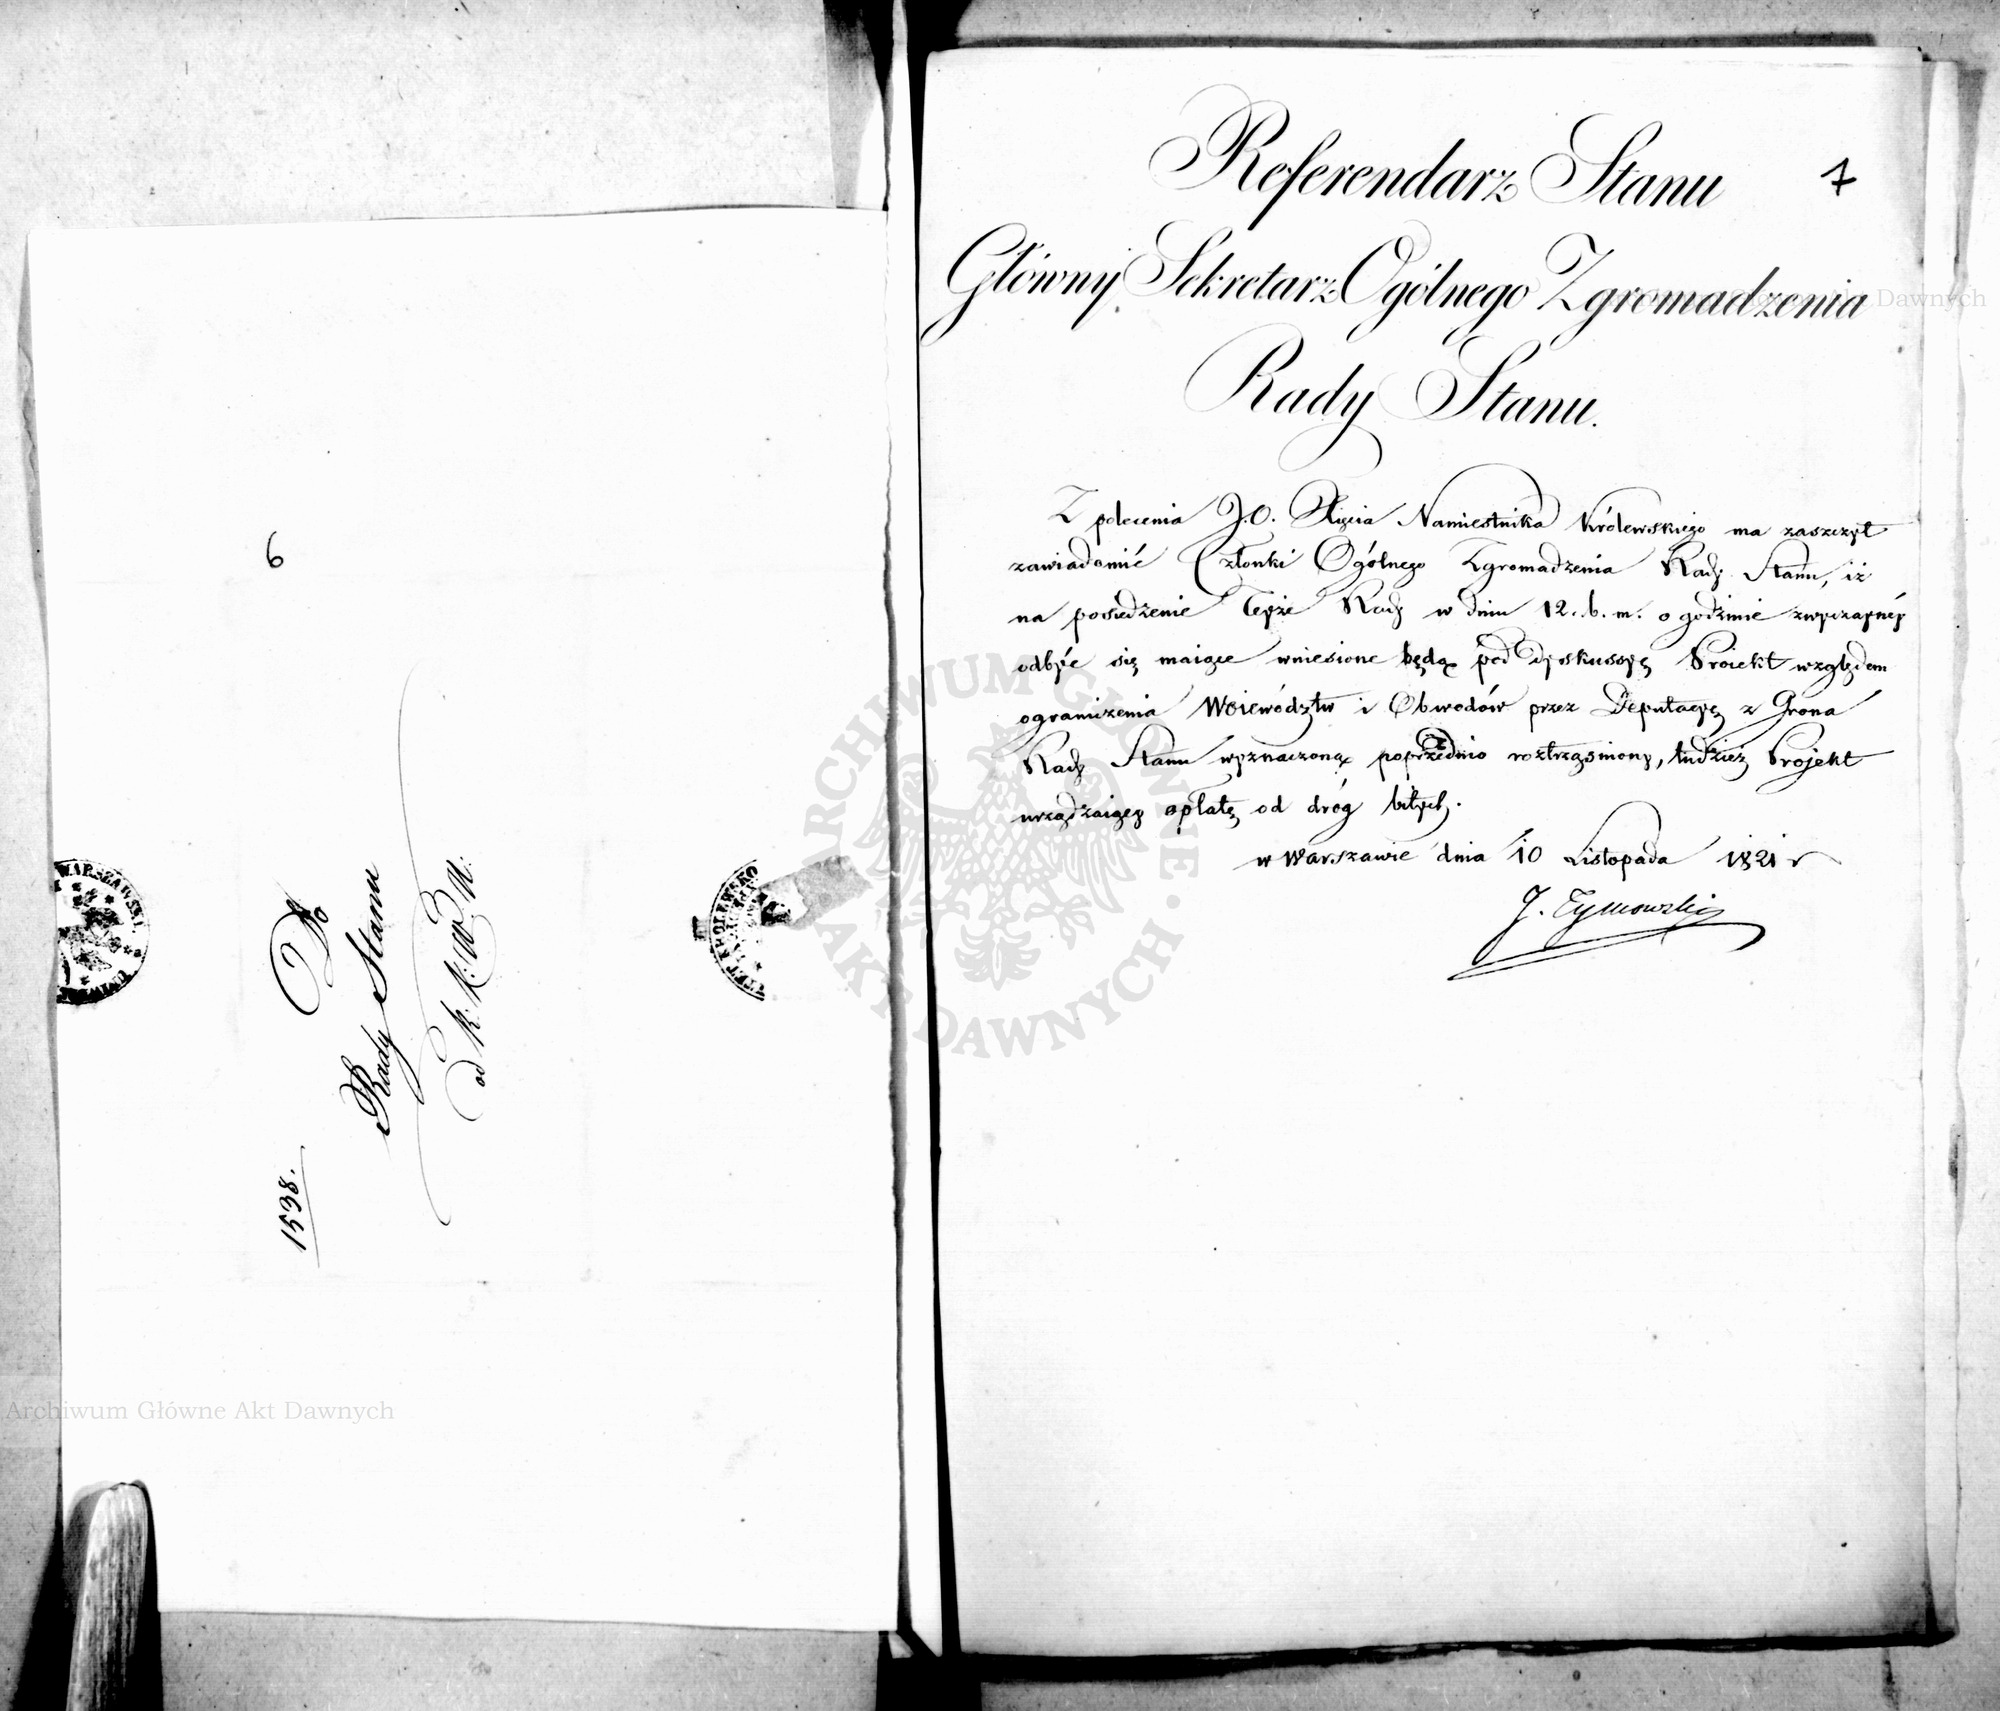 6
1538.
Do
Rady Stanu
od K. K: W
WARSZAWSKI.
UNIWER
TET KRÓLEWSKO
7
Referendarz Stanu
Główny Sekretarz Ogólnego Zgromadzenia
Rady Stanu.
Z polecenia J.O. Xięcia Namiestnika Królewskiego ma zaszczyt
zawiadomić Członki Ogólnego Zgromadzenia Rady Stanu, iż
na posiedzenie teyże Rady w dniu 12. b. m. o godzinie zwyczaynéy
odbyć się maiące wniesione będą pod dyskussyę Proiekt względem
ograniczenia Woiewództw i Obwodów przez Deputacyę z Grona
Rady Stanu wyznaczoną poprzednio roztrząśniony, tudzież Projekt
urządzaiący opłatę od dróg bitych.
w Warszawie dnia 10 Listopada 1821 r
J. Tymowski
Archiwum Główne Akt Dawnych
ARCHIWUM GŁÓWNE AKT DAWNYCH
Akt Dawnych